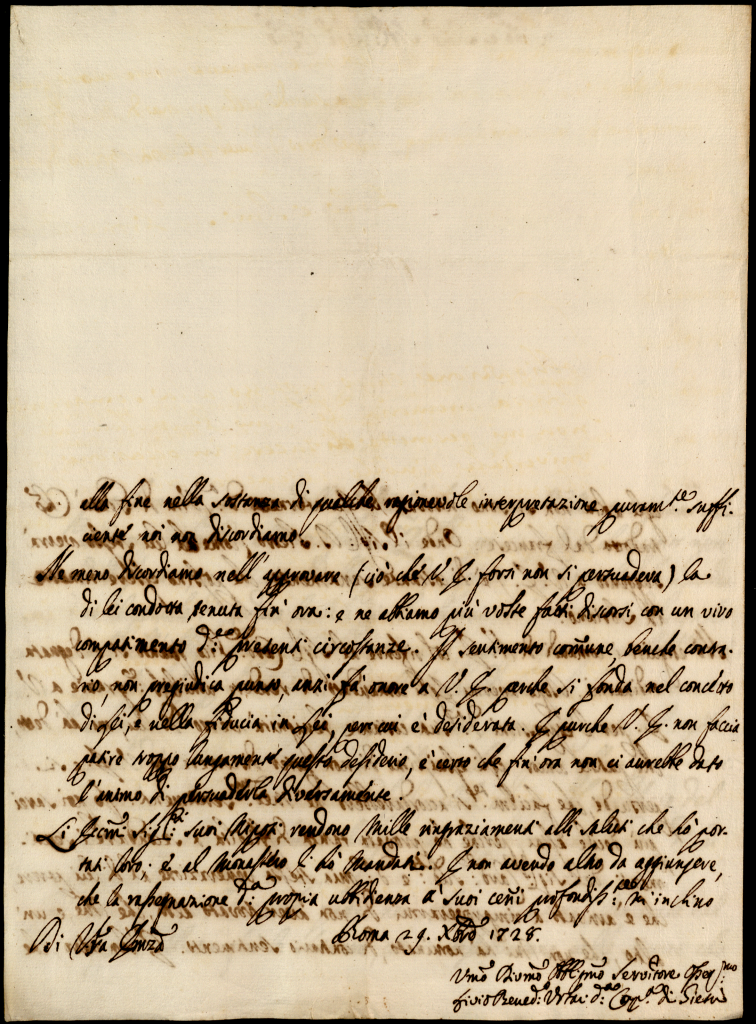 alla fine nella sostanza di qualche ragionevole interpretazione puram.te suffi-
ciente noi non discordiamo.
Ne meno discordiamo nell'approvare (ciò che V. E. forsi non si persuadeva) la
di lei condotta tenuta fin' ora: e ne abbiamo più volte fatti discorsi, con un vivo
compatimento d:e presenti circostanze. Il sentimento comune, benche contra-
rio, non pregiudica punto, anzi fà onore a V. E. perche si fonda nel concetto
di Lei, e nella fiducia in Lei, per cui è desiderata. E purche V. E. non faccia
patire troppo lungamente questo desiderio, è certo che fin' ora non ci averebbe dato
l'animo di persuaderla diversamente.
Li Eccm. Sig.ri suoi Nipoti rendono mille ringraziamenti alli saluti che hò por-
tati loro, e al Monastero li hò mandati. E non avendo altro da aggiungere,
che la rassegnazione d:a propria ubbidienza a' suoi cenni profondiss:te m'inclino
Di V'ra Emza
Roma 29. Xbre 1728.
Umo Divmo Obbligmo Servitore Osseq:mo